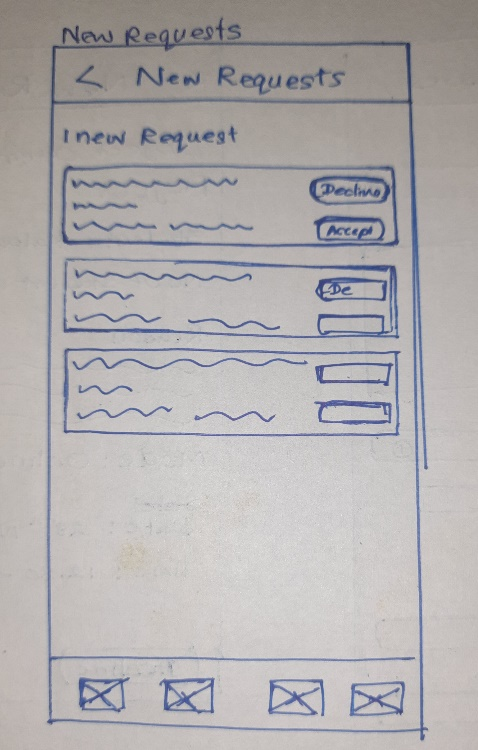 New Requests
< New Requests
1 new Request
Decline
Accept
De